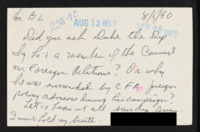 Hi B.L. 8/5/90
AUG 13 1990
Did you ask Duke the Dip
why he's a member of the Council
on Foreign Relations? Or why
he was surrounded by CFR foreign
policy advisors during his campaign?
Let's hear it all someday
I won't hold my breath